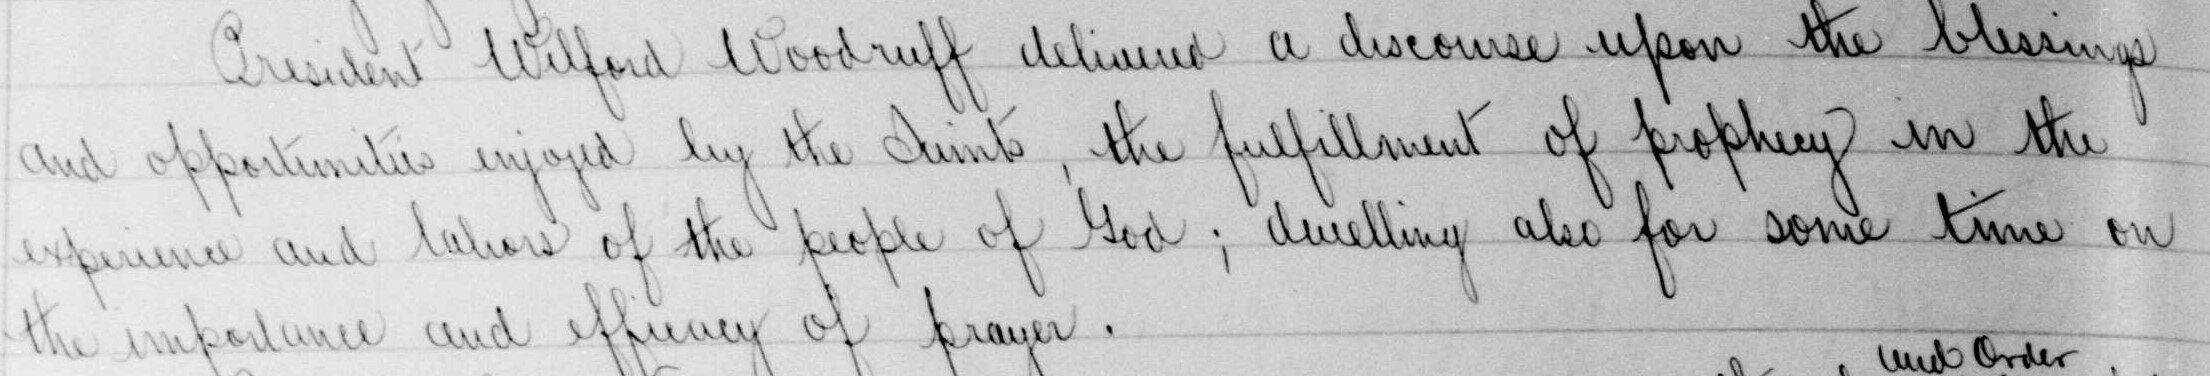 President Wilford Woodruff delivered a discourse upon the blessings
and opportunities enjoyed by the Saints, the fulfillment of prophecy in the
experience and labors of the people of God; dwelling also for some time on
the importance and efficacy of prayer.
and Order